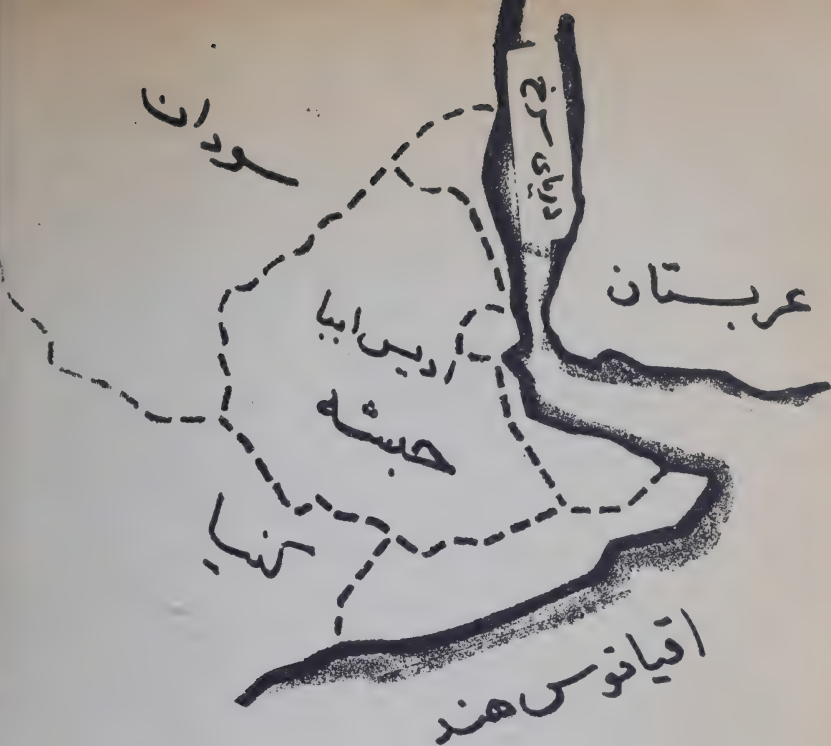 سودان
دریای سرخ
عربستان
ادیس ابابا
حبشه
کنیا
اقیانوس هند